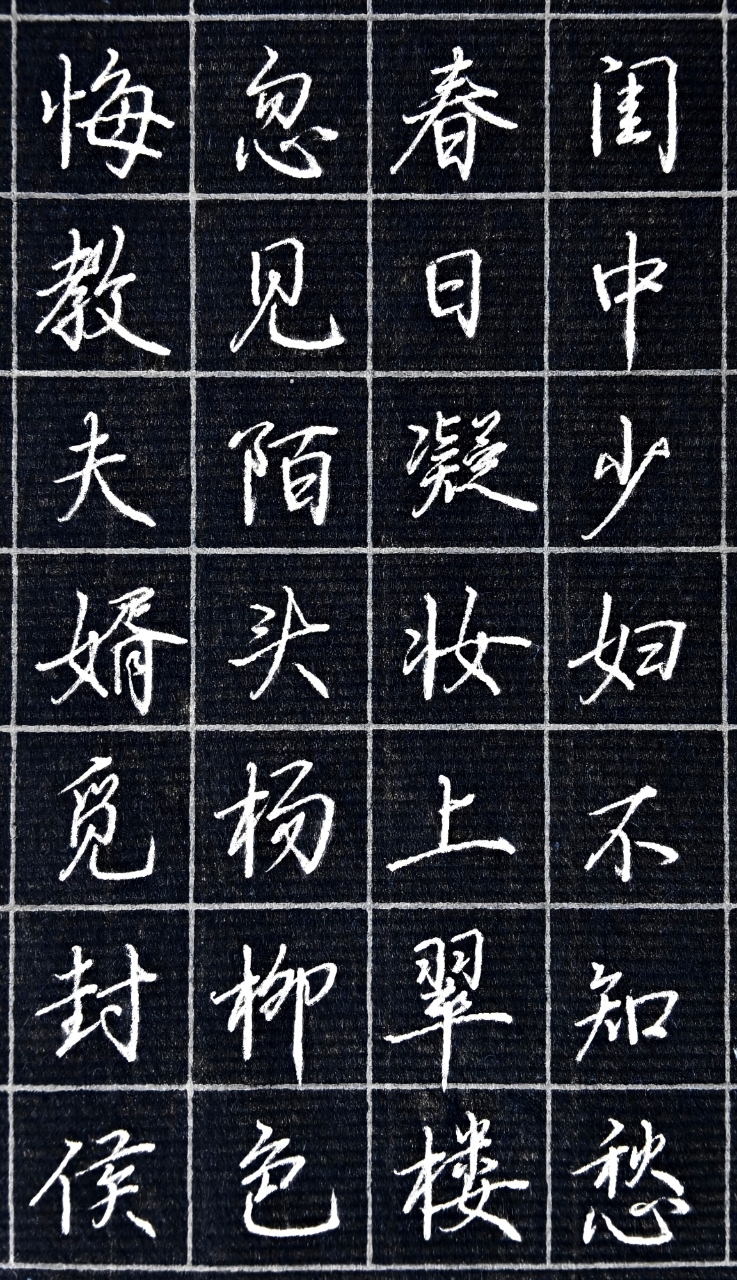 闺中少妇不知愁
春日凝妆上翠楼
忽见陌头杨柳色
悔教夫婿觅封侯